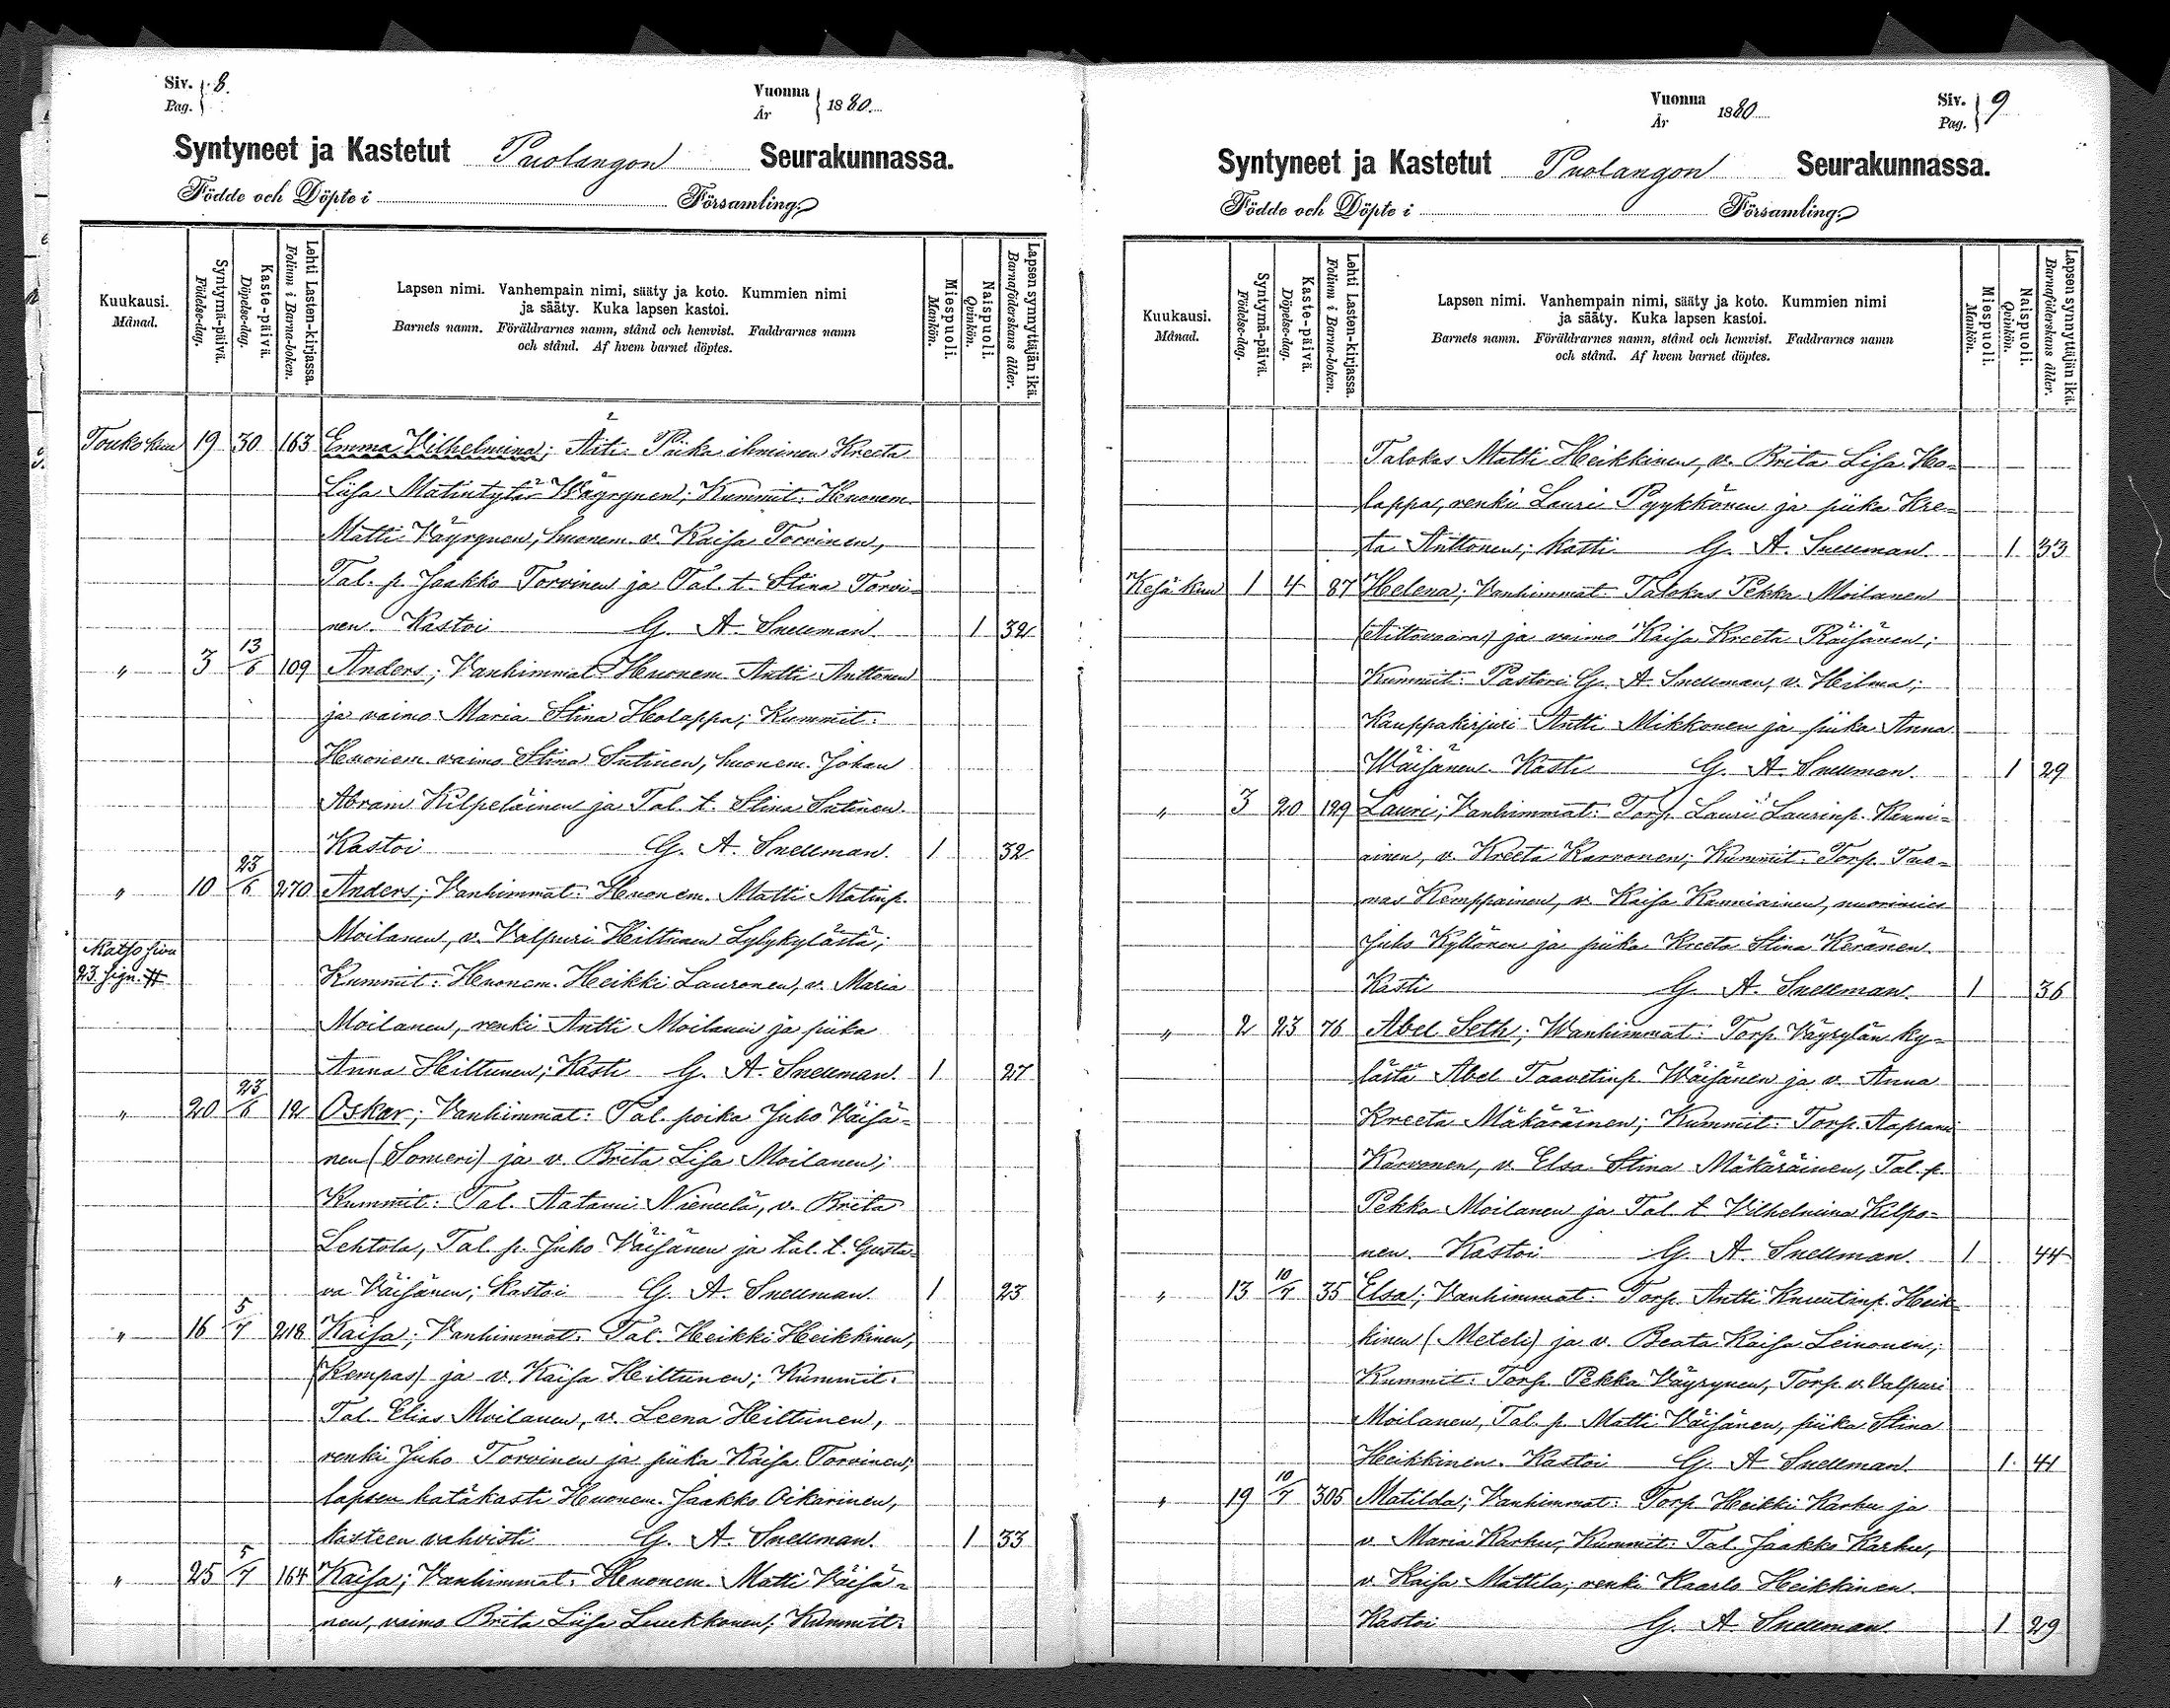 Siv. 8.
Pag.
Vuonna 1880.
År
Syntyneet ja Kastetut Puolangon Seurakunnassa.
Födde och Döpte i Församling.
Kuukausi.
Månad.
Syntymä-päivä.
Födelse-dag.
Kaste-päivä.
Döpelse-dag.
Lehti Lasten-kirjassa.
Folium i Barna-boken.
Lapsen nimi. Vanhempain nimi, sääty ja koto. Kummien nimi
ja sääty. Kuka lapsen kastoi.
Barnets namn. Föräldrarnes namn, stånd och hemvist. Faddrarnes namn
och stånd. Af hvem barnet döptes.
Miespuoli.
Mankön.
Naispuoli.
Qvinkön.
Lapsen synnyttäjän ikä.
Barnaföderskans ålder.
Toukokuu 19 30 163 Emma Vilhelmina; Äiti: Piika ihminen Kreeta
Liisa Matintytär Wäyrynen; Kummit: Huonem.
Matti Väyrynen, huonem. v. Kaisa Torvinen,
Tal. p. Jaakko Torvinen ja Tal. t. Stina Torvi-
nen. Kastoi G. A. Snellman. 1 32
" 3 13/6 109 Anders; Vanhimmat Huonem. Antti Anttonen
ja vaimo Maria Stina Holappa; Kummit:
Huonem. vaimo Stina Sutinen, huonem. Johan
Abram Kilpeläinen ja Tal. t. Stina Sutinen.
Kastoi G. A. Snellman. 1 32
" 10 23/6 270 Anders; Vanhimmat: Huonem. Matti Matinp.
Moilanen, v. Valpuri Hiltunen Lylykylästä;
Katso sivu
23. sign. #
Kummit: Huonem. Heikki Lauronen, v. Maria
Moilanen, renki Antti Moilanen ja piika
Anna Hiltunen; Kasti G. A. Snellman. 1 27
" 20 23/6 12 Oskar; Vanhimmat: Tal. poika Juho Väisä-
nen (Someri) ja v. Brita Lisa Moilanen;
Kummit: Tal. Aatami Niemelä, v. Brita
Lehtola, Tal. p. Juho Väisänen ja tal. t. Gusta-
va Väisänen; Kastoi G. A. Snellman. 1 23
" 16 5/7 218 Kaisa; Vanhimmat: Tal. Heikki Heikkinen,
(Kempas) ja v. Kaisa Hiltunen; Kummit:
Tal. Elias Moilanen, v. Leena Hiltunen,
renki Juho Torvinen ja piika Kaisa Torvinen;
lapsen hätäkasti Huonem. Jaakko Oikarinen,
kasteen vahvisti G. A. Snellman. 1 33
" 25 5/7 164 Kaisa; Vanhimmat: Huonem. Matti Väisä-
nen, vaimo Brita Liisa Luukkonen; Kummit:
Vuonna 1880
År
Siv. 9
Pag.
Syntyneet ja Kastetut Puolangon Seurakunnassa.
Födde och Döpte i Församling.
Kuukausi.
Månad.
Syntymä-päivä.
Födelse-dag.
Kaste-päivä.
Döpelse-dag.
Lehti Lasten-kirjassa.
Folium i Barna-boken.
Lapsen nimi. Vanhempain nimi, sääty ja koto. Kummien nimi
ja sääty. Kuka lapsen kastoi.
Barnets namn. Föräldrarnes namn, stånd och hemvist. Faddrarnes namn
och stånd. Af hvem barnet döptes.
Miespuoli.
Mankön.
Naispuoli.
Qvinkön.
Lapsen synnyttäjän ikä.
Barnaföderskans ålder.
Talokas Matti Heikkinen, v. Brita Lisa Ho-
lappa, renki Lauri Pyykkönen ja piika Kre-
ta Anttonen; Kasti G. A. Snellman 1 33
Kesäkuu 1 4 87 Helena; Vanhimmat Talokas Pekka Moilanen
(Aittovaara) ja vaimo Kaisa Kreeta Räisänen;
Kummit: Pastori G. A. Snellman, v. Hilma;
Kauppakirjuri Antti Mikkonen ja piika Anna
Wäisänen. Kasti G. A. Snellman. 1 29
" 3 20 129 Lauri; Vanhimmat: Torp. Lauri Laurinp. Kanni-
ainen, v. Kreeta Karvonen; Kummit: Torp. Taa-
vas Kemppainen, v. Kaisa Kanniainen, nuorimies
Juho Kyllönen ja piika Kreeta Stina Keränen.
Kasti G. A. Snellman. 1 36
" 2 23 76 Abel Seth; Wanhimmat: Torp. Väyrylän ky-
lästä Abel Taavetinp. Wäisänen ja v. Anna
Kreeta Mäkäräinen; Kummit: Torp. Aaprami
Karvonen, v. Elsa Stina Mäkäräinen, Tal. p.
Pekka Moilanen ja Tal. t. Vilhelmina Kilpo-
nen. Kastoi G. A. Snellman. 1 44
" 13 10/7 35 Elsa; Vanhimmat: Torp. Antti Knuutinp. Heik-
kinen (Meteli) ja v. Beata Kaisa Leinonen;
Kummit: Torp. Pekka Väyrynen, Torp. v. Valpuri
Moilanen, Tal. p. Matti Väisänen, piika Stina
Heikkinen. Kastoi G. A Snellman. 1 41
" 19 10/7 305 Matilda; Vanhimmat: Torp. Heikki Karhu ja
v. Maria Karhu; Kummit: Tal. Jaakko Karhu,
v. Kaisa Mattila; renki Kaarlo Heikkinen.
Kastoi G. A Snellman. 1 29